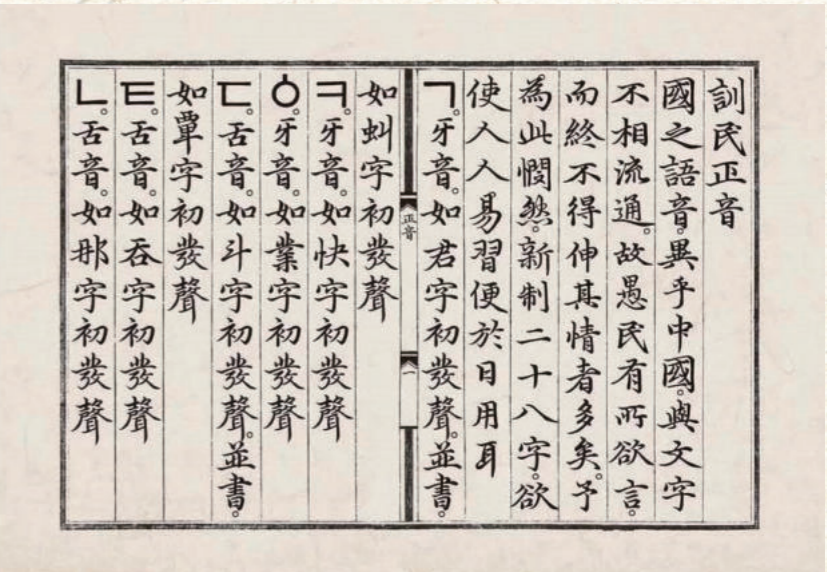 訓民正音
國之語音。異乎中國。與文字
不相流通。故愚民有所欲言。
而終不得伸其情者多矣。予
為此憫然。新制二十八字。欲
使人人易習便於日用耳
ㄱ。牙音。如君字初發聲。並書。
正音
一
如虯字初發聲
ㅋ。牙音。如快字初發聲
ㆁ。牙音。如業字初發聲
ㄷ。舌音。如斗字初發聲。並書。
如覃字初發聲
ㅌ。舌音。如呑字初發聲
ㄴ。舌音。如那字初發聲